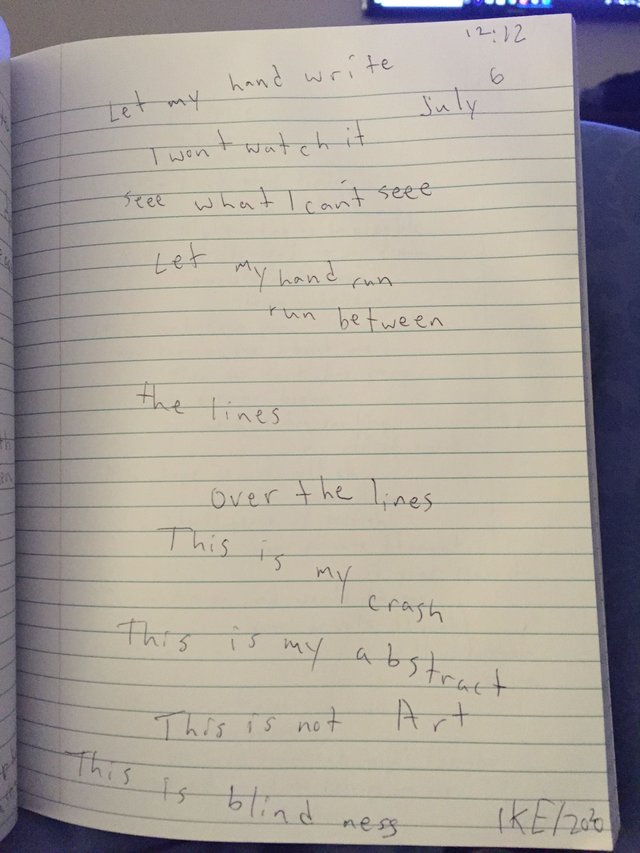 12:12
Let my hand write
July 6
I wont watch it
seee what I can't seee
Let my hand run
run between
the lines
over the lines
This is my crash
This is my abstract
This is not Art
This is blind ness
IKE/2020